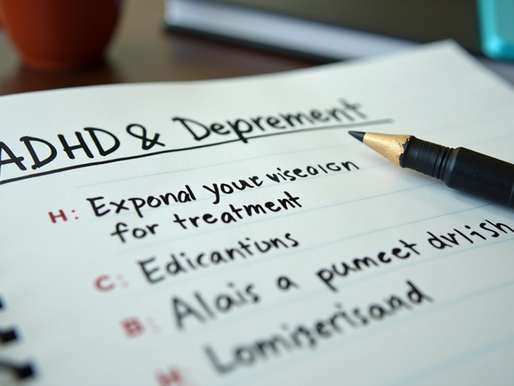 ADHD & Deprement
H: Exponal your viseaign
for treatment
C: Edicantuns
B: Alais a pumcet dvlish
H: Lomigerisand